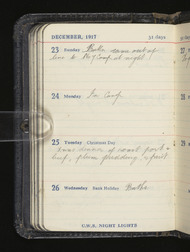 DECEMBER, 1917 31 days
23 Sunday Baths came up
to Camp at night
24 Monday In Camp
25 Tuesday Christmas Day
Xmas dinner of roast pork &
beef, plum pudding, & fruit
26 Wednesday Bank Holiday Baths
U.R.S. NIGHT LIGHTS